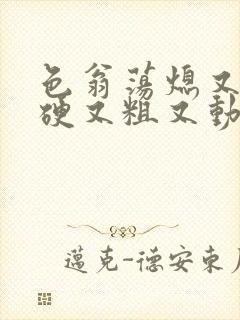 色翁荡熄又
硬又粗又動
邁克-德安東